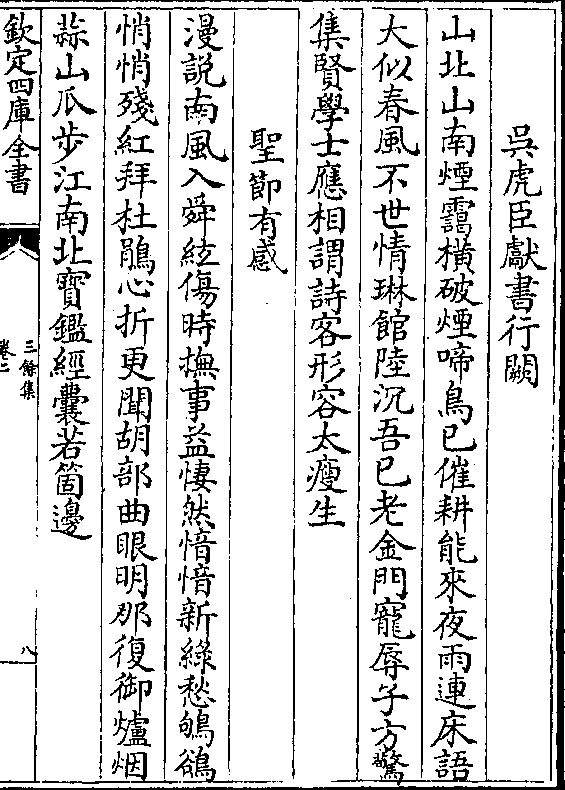 吳虎臣獻書行闕
山北山南煙靄橫破煙啼鳥已催耕能來夜雨連床語
大似春風不世情琳館陸沉吾已老金門寵辱子方驚
集賢學士應相謂詩客形容太瘦生
聖節有感
漫説南風入舜絃傷時撫事益悽然愔愔新綠愁鳷鵒
悄悄殘紅拜杜鵑心折更聞胡部曲眼明那復御爐烟
蒜山瓜步江南北寶鑑經囊若箇邊
欽定四庫全書
三餘集
卷二
八